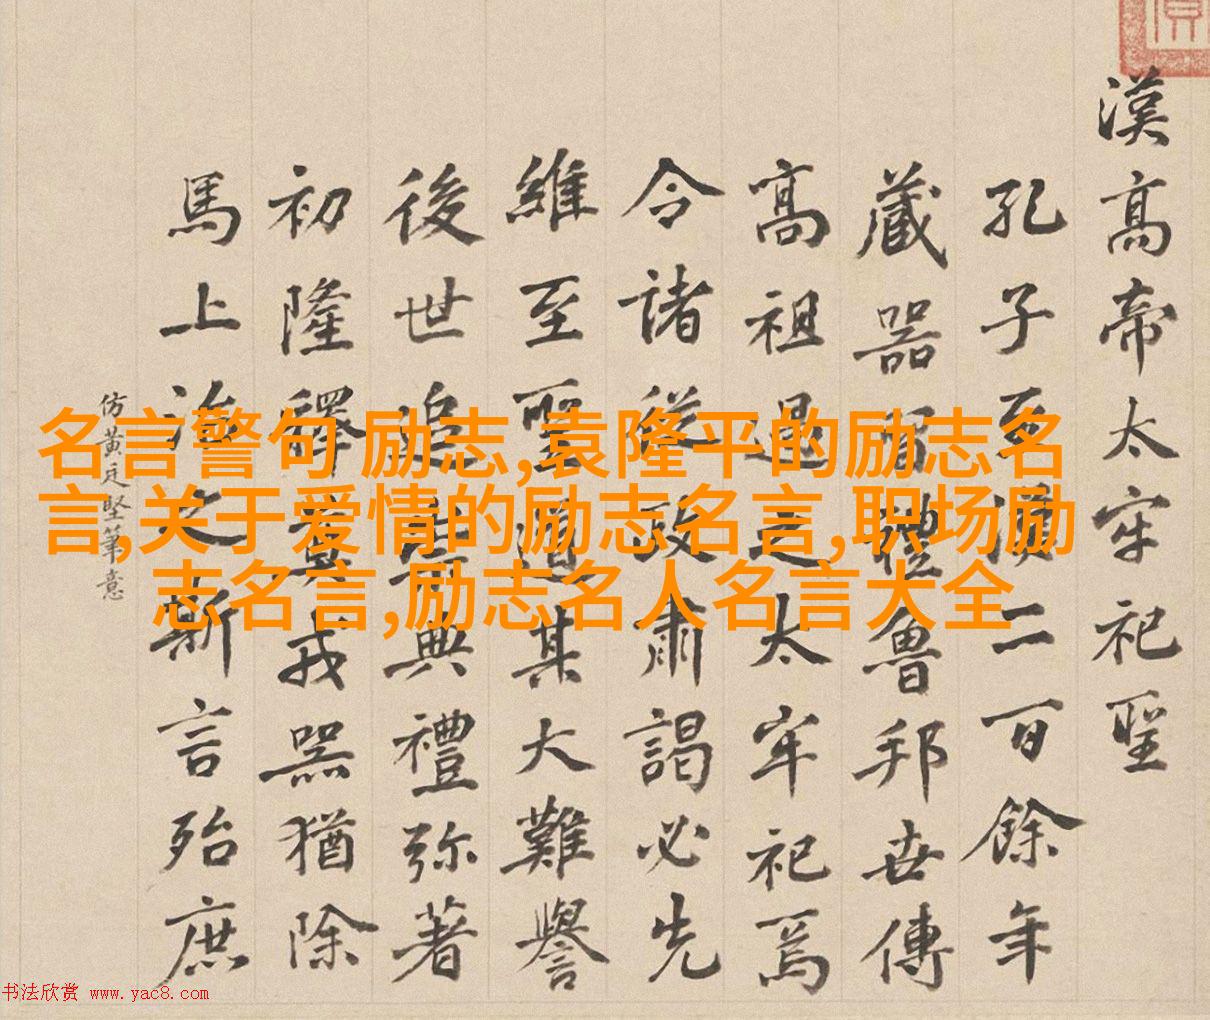 漢高帝太牢祀聖
孔子至漢二百餘年
藏器禮魯邦世傳
高祖過之太牢祀焉
令諸從政肅謁必先
維至聖道其大難譽
後世追典禮弥著
初隆釋奠戎器猶除
馬上治之斯言殆庶
仿黃庭堅筆意
名言警句 励志,袁隆平的励志名
言,关于爱情的励志名言,职场励
志名言,励志名人名言大全
书法欣赏 www.yac8.com